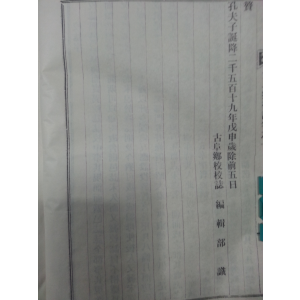 聲
孔夫子誕降二千五百十九年戊申歲除前五日
古阜鄉校校誌 編輯部 識